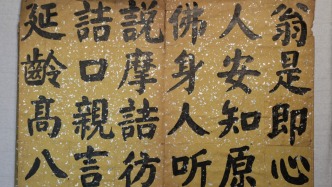 翁是即心
人安知原
佛身人听
説摩詰彷
詰口親言
延齡高八